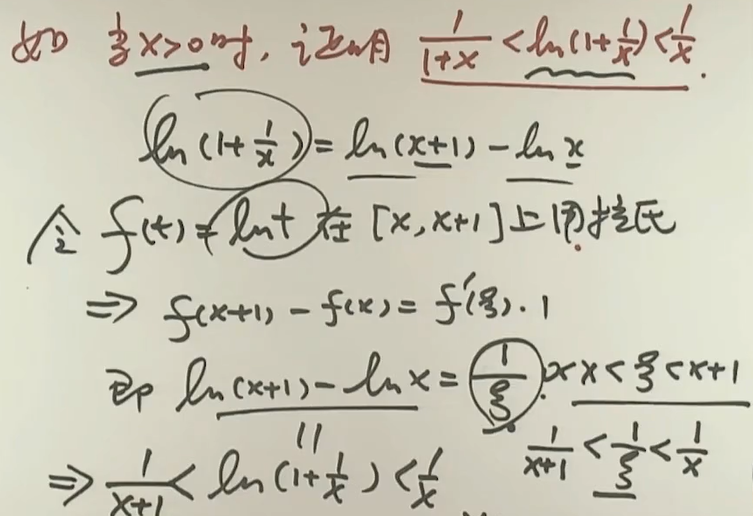 如 当x>0时, 证明 1/(1+x) < ln(1+1/x) < 1/x.
ln(1+1/x) = ln(x+1) - ln x
令 f(t) = ln t 在 [x, x+1] 上用拉氏
⇒ f(x+1) - f(x) = f'(ξ)·1
即 ln(x+1) - ln x = 1/ξ. x < ξ < x+1
1/(x+1) < 1/ξ < 1/x
⇒ 1/(x+1) < ln(1+1/x) < 1/x